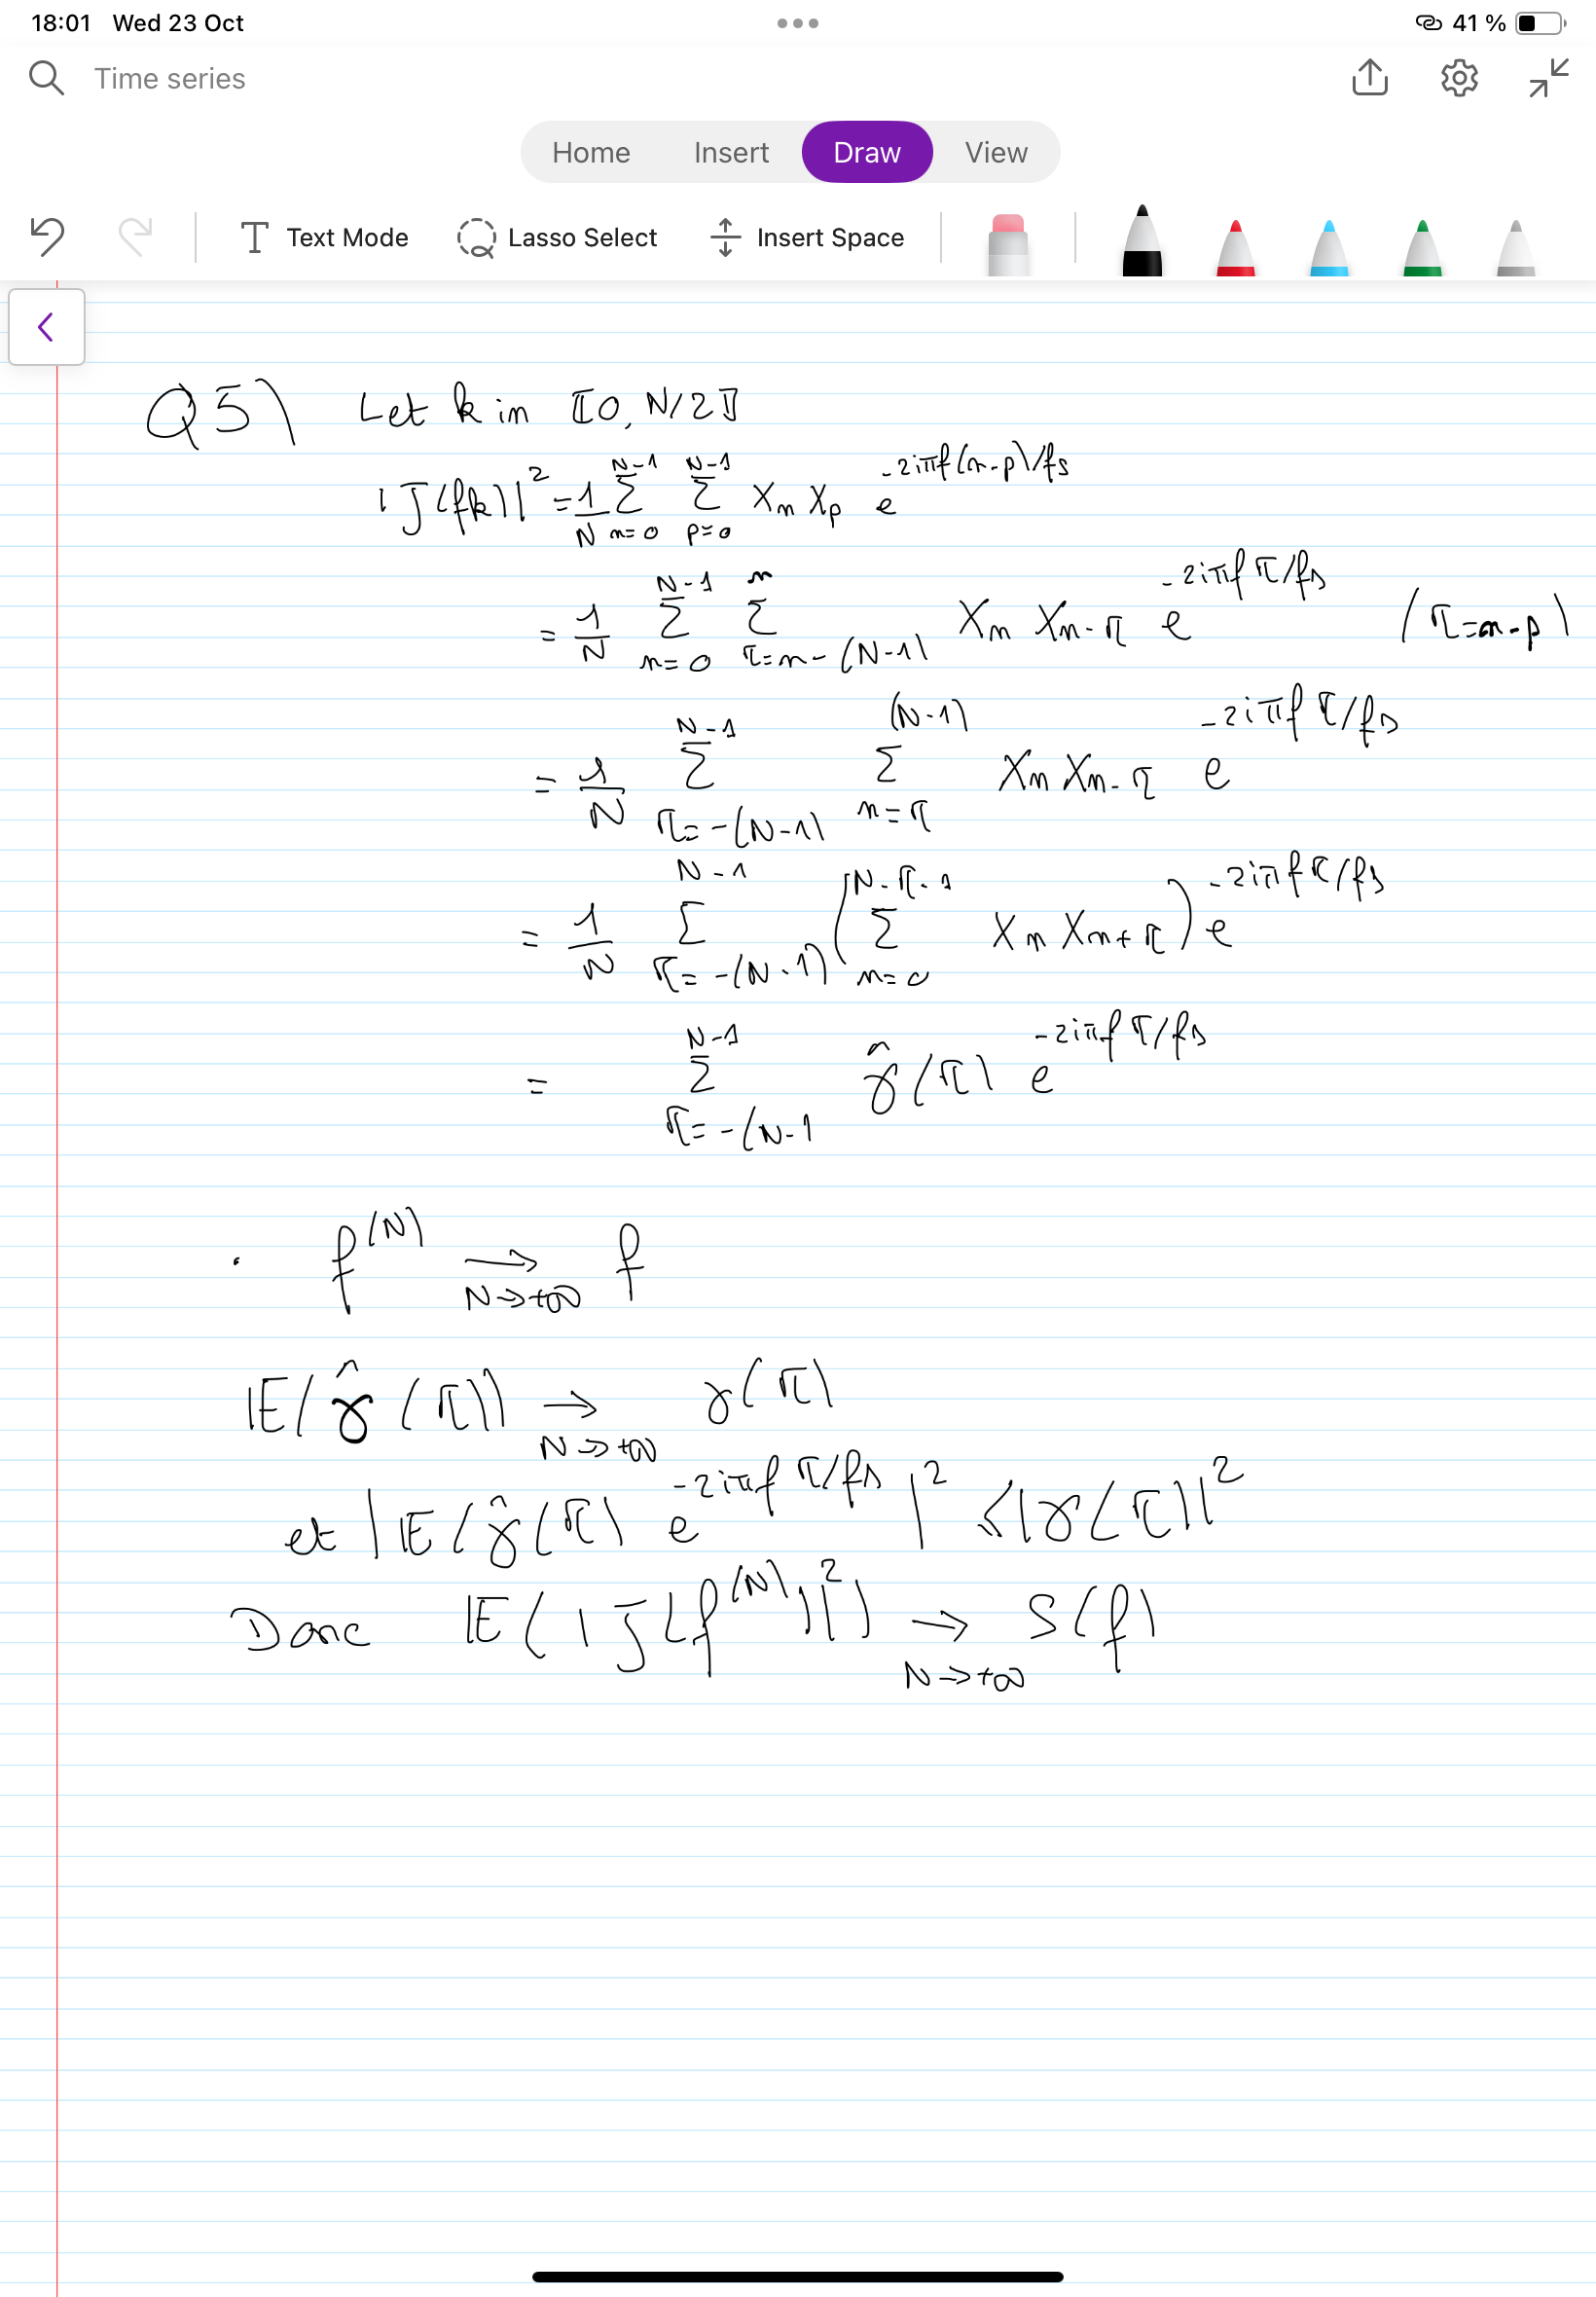 18:01 Wed 23 Oct 41 %
Time series
Home Insert Draw View
Text Mode Lasso Select Insert Space
Q5) Let k in ⟦0, N/2⟧
|J(fk)|² = 1/N Σ_{n=0}^{N-1} Σ_{p=0}^{N-1} Xn Xp e^{-2iπf(n-p)/fs}
= 1/N Σ_{n=0}^{N-1} Σ_{τ=n-(N-1)}^{n} Xn Xn-τ e^{-2iπfτ/fs} (τ=n-p)
= 1/N Σ_{τ=-(N-1)}^{N-1} Σ_{n=τ}^{(N-1)} Xn Xn-τ e^{-2iπfτ/fs}
= 1/N Σ_{τ=-(N-1)}^{N-1} (Σ_{n=0}^{N-τ-1} Xn Xn+τ) e^{-2iπfτ/fs}
= Σ_{τ=-(N-1}^{N-1} γ̂(τ) e^{-2iπfτ/fs}
· f^{(N)} →_{N→+∞} f
𝔼(γ̂(τ)) →_{N→+∞} γ(τ)
et |𝔼(γ̂(τ) e^{-2iπfτ/fs}|² ≤ |γ(τ)|²
Donc 𝔼(|J(f^{(N)})|²) →_{N→+∞} S(f)